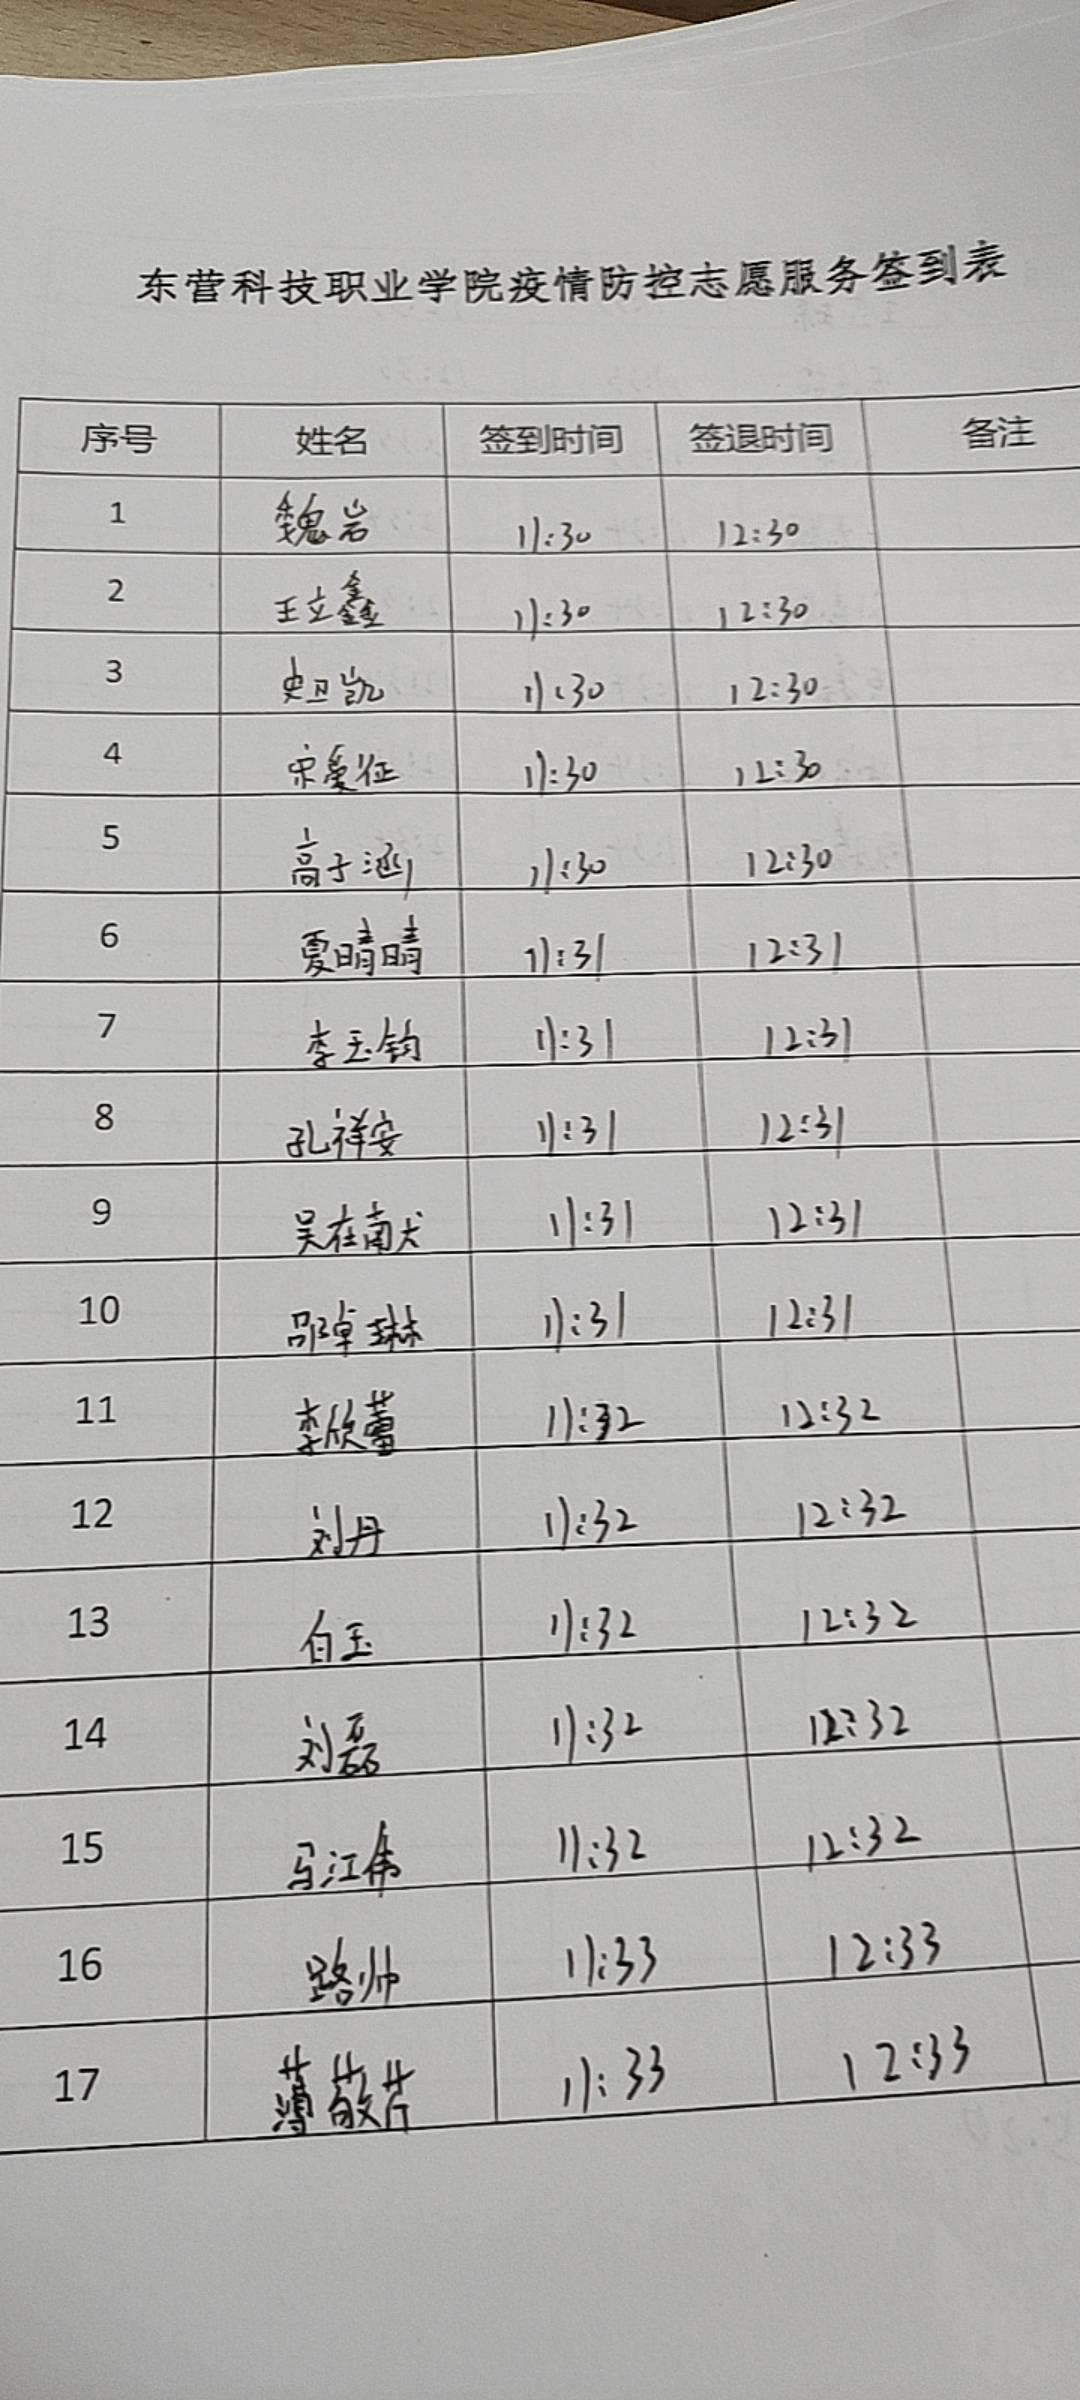 东营科技职业学院疫情防控志愿服务签到表
序号 姓名 签到时间 签退时间 备注
1 魏岩 11:30 12:30
2 王立鑫 11:30 12:30
3 史卫凯 11:30 12:30
4 宋爱征 11:30 12:30
5 高于涵 11:30 12:30
6 夏晴晴 11:31 12:31
7 李玉钧 11:31 12:31
8 孔祥安 11:31 12:31
9 11:31 12:31
10 邵卓琳 11:31 12:31
11 李欣蕾 11:32 12:32
12 刘丹 11:32 12:32
13 白玉 11:32 12:32
14 刘磊 11:32 12:32
15 马江伟 11:32 12:32
16 路帅 11:33 12:33
17 薄敬芹 11:33 12:33